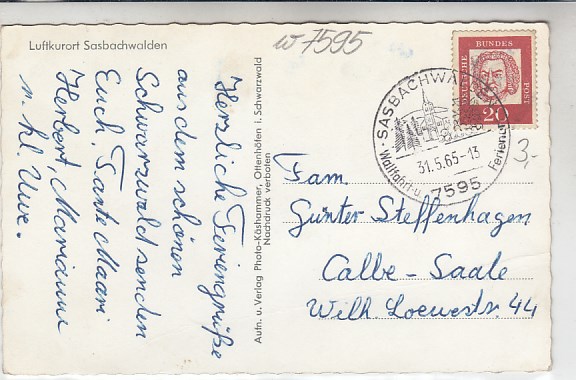 Luftkurort Sasbachwalden
w 7595
Herzliche Feriengrüße
aus dem schönen
Schwarzwald senden
Euch, Tante Maari
Herbert, Marianne
u. kl. Uwe.
Aufn. u. Verlag Photo-Käshammer, Ottenhöfen i. Schwarzwald
Nachdruck verboten
DEUTSCHE
BUNDES
POST
20
SASBACHWALDEN
31.5.65-13
Wallfahrt-u.
7595
3,-
Fam.
Günter Steffenhagen
Calbe-Saale
Wilh. Loewestr. 44